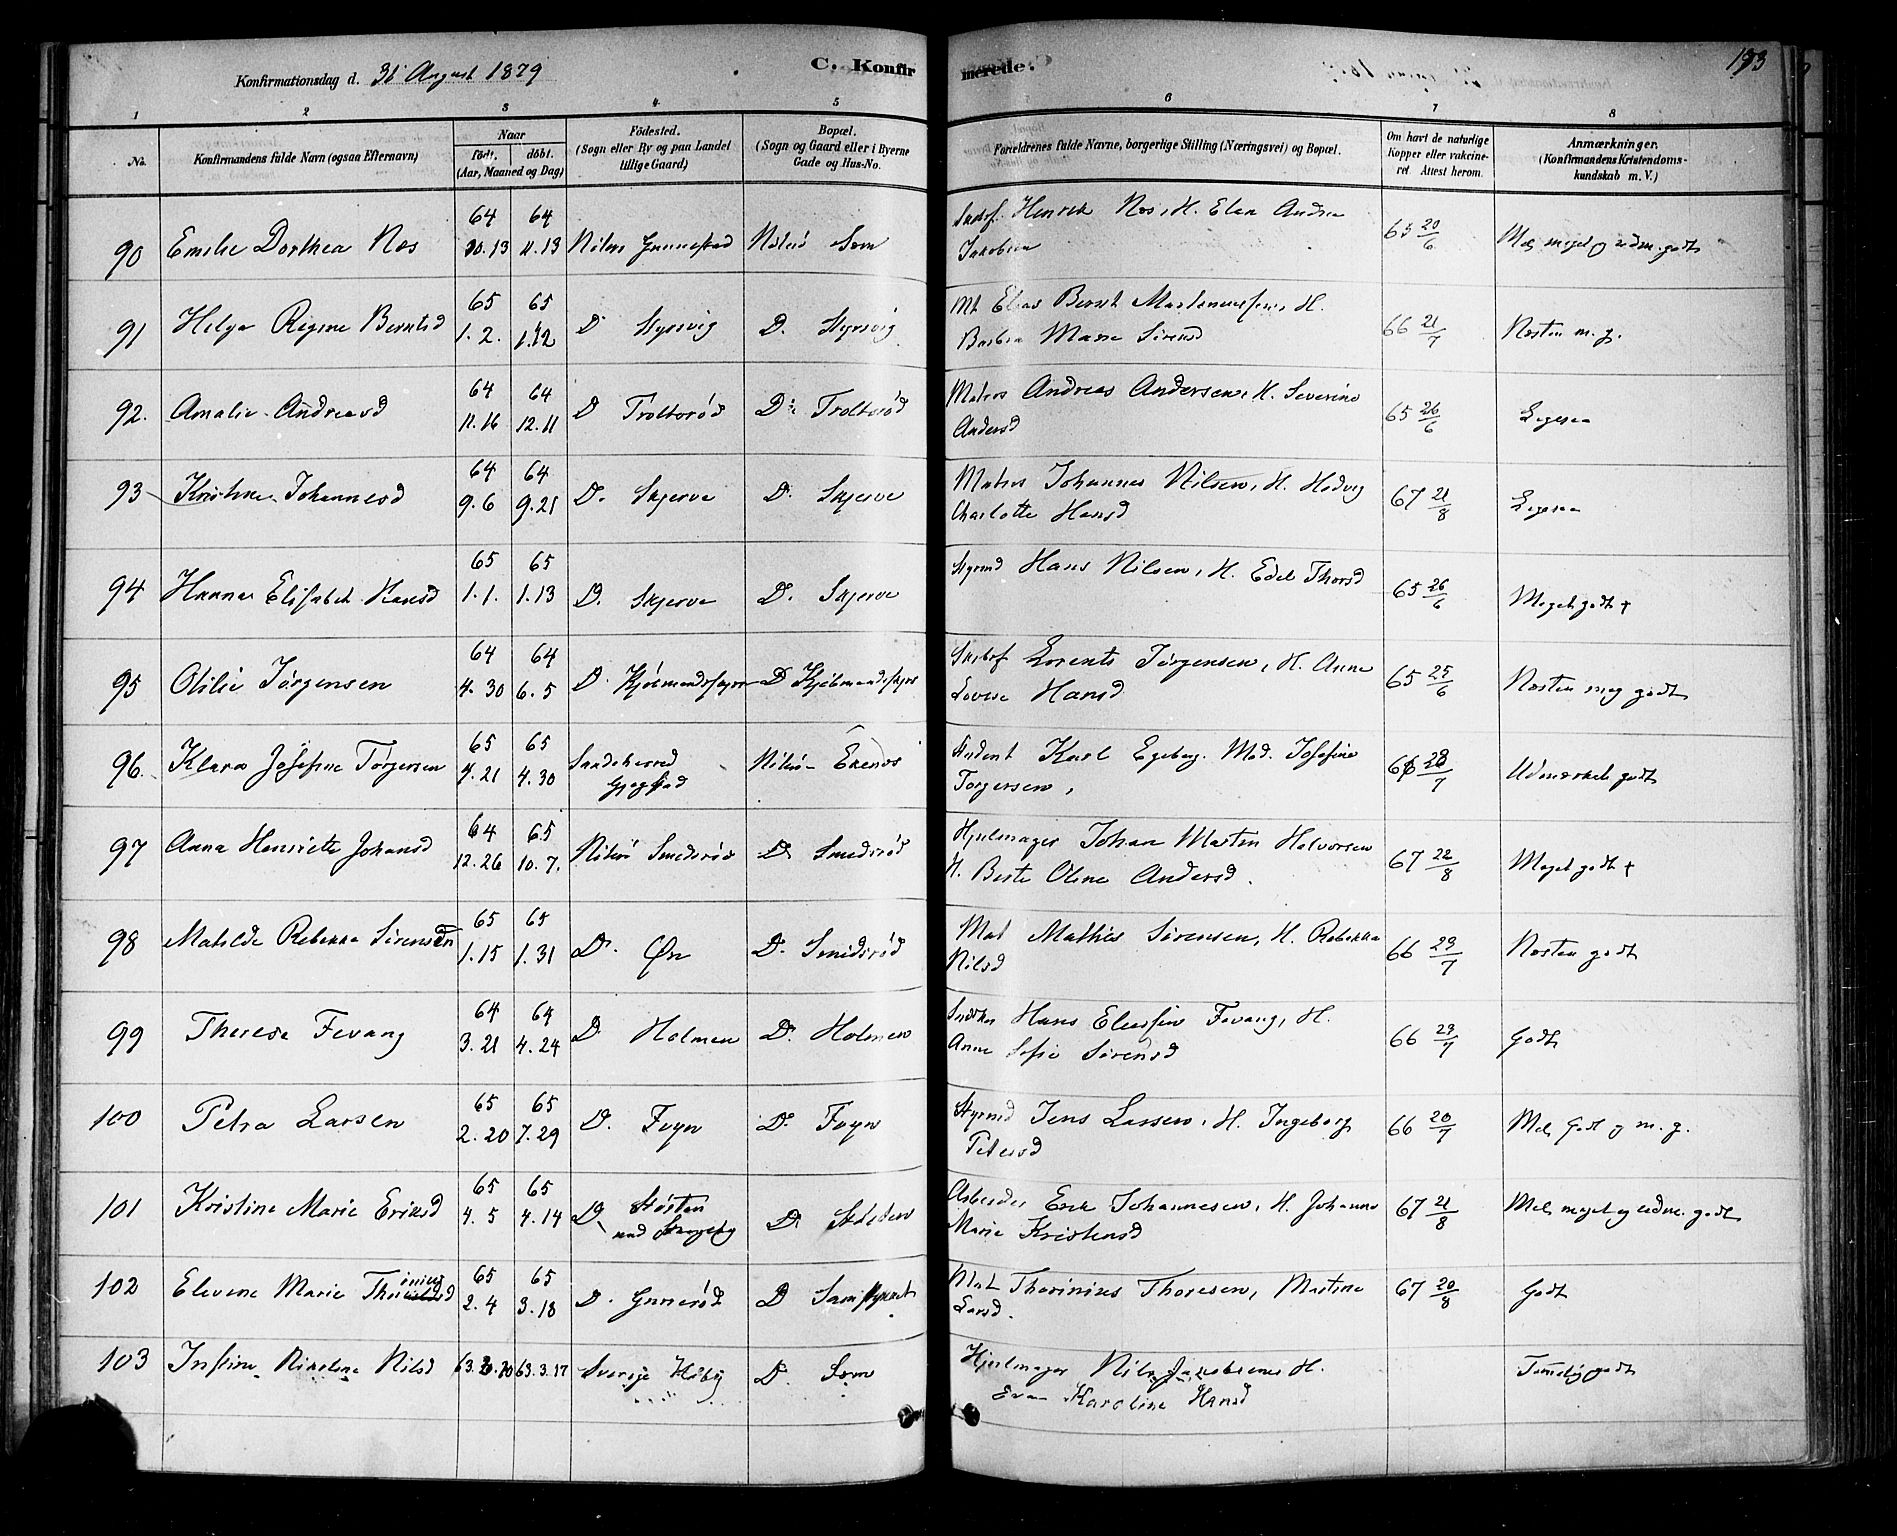 Konfirmationsdag d. 31 August 1879
C. Konfirmerede.
193
1 2 3 4 5 6 7 8
No.
Konfirmandens fulde Navn (ogsaa Efternavn)
Naar
født. døbt.
(Aar, Maaned og Dag)
Fødested.
(Sogn eller By og paa Landet
tillige Gaard)
Bopæl.
(Sogn og Gaard eller i Byerne
Gade og Hus-No.
Forældrenes fulde Navne, borgerlige Stilling (Næringsvei) og Bopæl.
Om havt de naturlige
Kopper eller vakcine-
ret. Attest herom.
Anmærkninger.
(Konfirmandens Kristendoms-
kundskab m. V.)
90 Emilie Dorthea Næs 64 10.13 64 11.13 Nøterø Gunnestad Nøterø Sem
Henrik Næs, H. Elen Andrea
Jakobsen 65 20/6 Mel. meget og udm. godt
91 Helga Regine Berntsd 65 1.2. 65 1.12 D Styrsvig D. Styrsvig
Mt Elias Bernt Martinussen, H.
Barbra Marie Sørensd 66 21/7 Næsten m. g.
92. Amalie Andreasd 64 11.16 64 12.11 D Trolborød D: Trolborød
Matros Andreas Andersen, H. Severine
Andersd 65 26/6 Ligesaa
93 Kristine Johannesd 64 9.6 64 9.21 D. Skjerve D. Skjerve
Matros Johannes Nilsen, H. Hedvig
Charlotte Hansd 67 21/8 Ligesaa
94 Hanna Elisabet Hansd 65 1.1. 65 1.13 D. Skjerve D. Skjerve
Styrmd Hans Nilsen, H. Edel Thorsd 65 26/6 Meget godt +
95 Otilie Jørgensen 64 4.30 64 6.5 D. Kjøbmandskjær D Kjøbmandskjær
Skibsf Lorents Jørgensen, H. Anne
Lovise Hansd 65 25/6 Næsten meg godt
96. Klara Josefine Torgersen 65 4.21 65 4.30 Sandeherred
Gjogstad Nøterø Ekenes
Student Karl Egeberg. Mod. Josefine
Torgersen, 66 28/7 Udmærket godt
97 Anna Henriette Johansd 64 12.26 65 10.7. Nøterø Smedsrød D Smedsrød
Hjulmager Johan Martin Halvorsen
H. Berte Oline Andersd. 67 22/8 Meget godt +
98 Matilde Rebekka Sørensen 65 1.15 65 1.31 D. Øn D. Smidsrød
Mat Mathis Sørensen, H. Rebekka
Nilsd 66 23/7 Næsten godt
99 Therese Fevang 64 3.21 64 4.24 D Holmen D. Holmen
Snedker Hans Elessen Fevang, H.
Anne Sofie Sørensd 66 23/7 Godt
100 Petra Larsen 65 2.20 65 7.29 D. Føyn D. Føyn
Styrmd Jens Larsen, H. Ingeborg
Petersd 66 20/7 Mel. Godt og m. g.
101 Kristine Marie Eriksd 65 4.5 65 4.14 D. Støten D Støten
Arbeider Erik Johannesen, H. Johanne
Marie Kristensd 67 21/8 Mel. meget og udm. godt
102 Elevine Marie 65 2.4 65 3.18 D. Gunerød D
Mat Thorinius Thoresen, Martine
Larsd. 67 20/8 Godt
103 Nikoline Nilsd 63 63.3.17 Sverige D. Sem
Hjulmager Nils Jakobsen H.
Eva Karoline Hansd Temelig godt